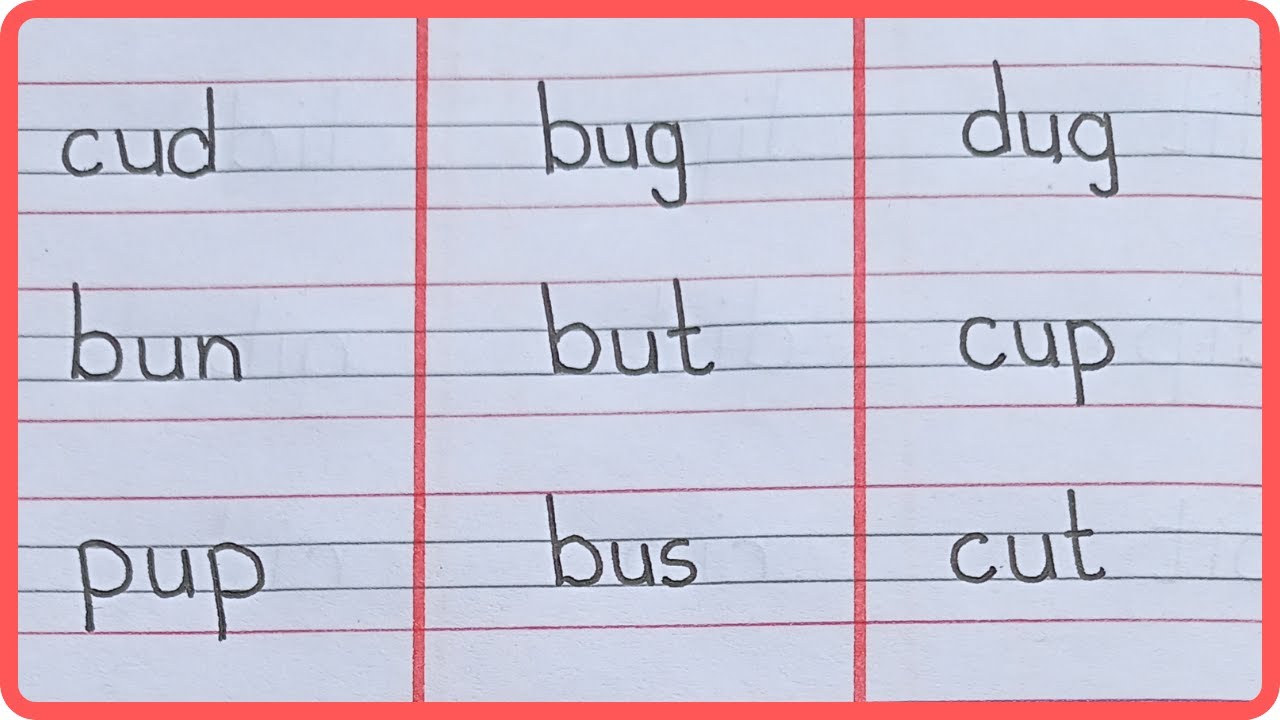 cud bug dug
bun but cup
pup bus cut